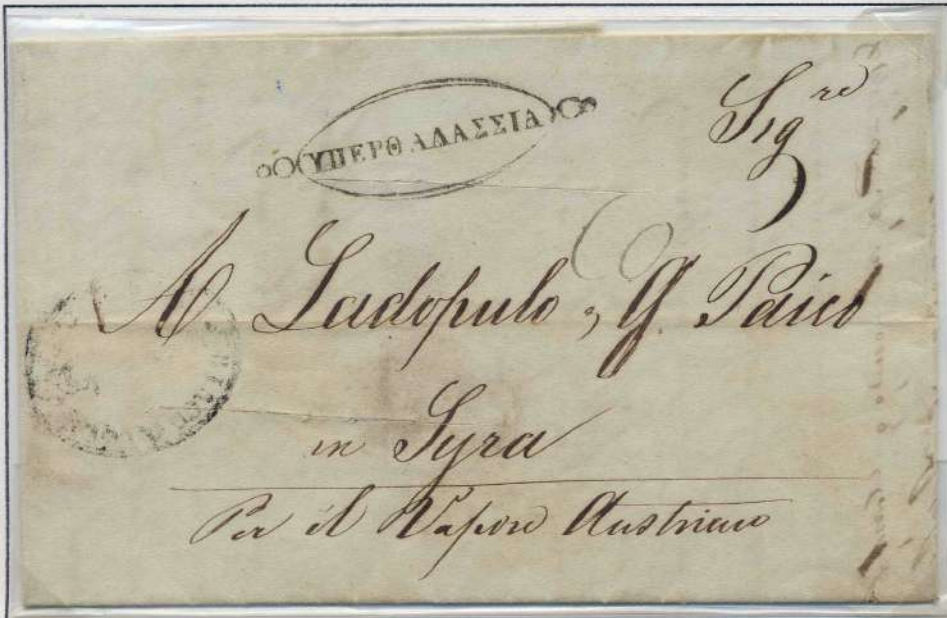 ΥΠΕΡΘΑΛΑΣΣΙΑ
Sig re
A Ladopulo, G. Paico
in Syra
Per il Vapore Austriaco